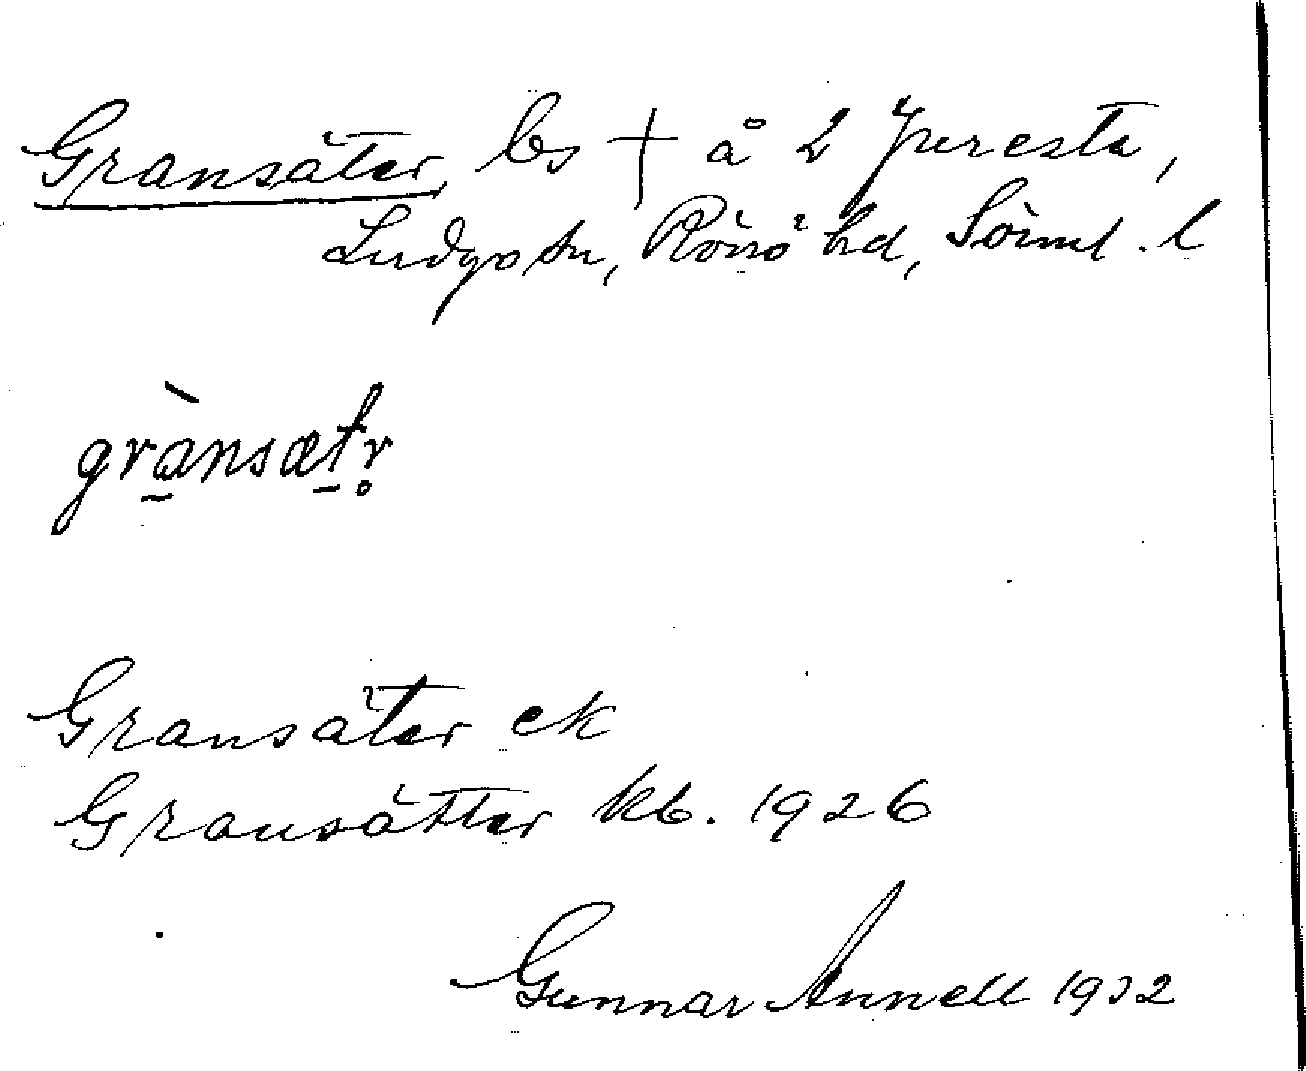 Gransäter, bs † å 2 Juresta,
Ludgo sn, Rönö hd, Söiml. l
grànsætr̥
Gransäter ek
Gransätter kb. 1926
Gunnar Annell 1932